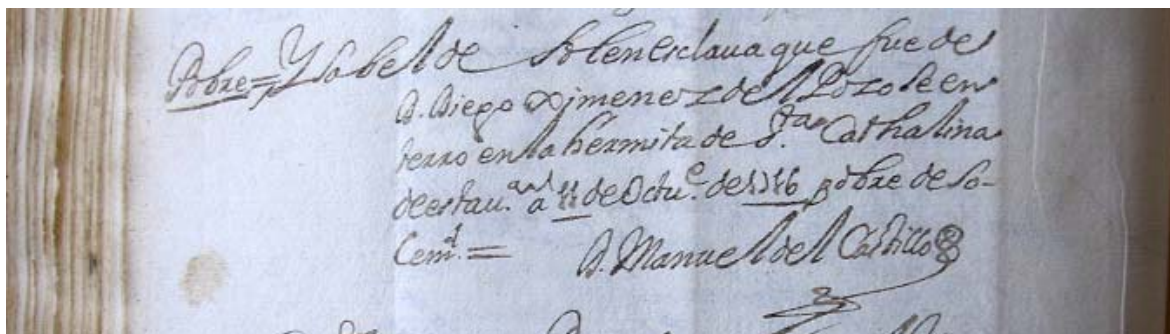 Pobre = Ysabel de Solen esclaua que fue de
D. Diego Ximenez del Pozo se en
terro en la hermita de S.ta Cathalina
de esta u.a a 11 de Octu.e de 1716 pobre de so-
lem.d =
D. Manuel del Castillo